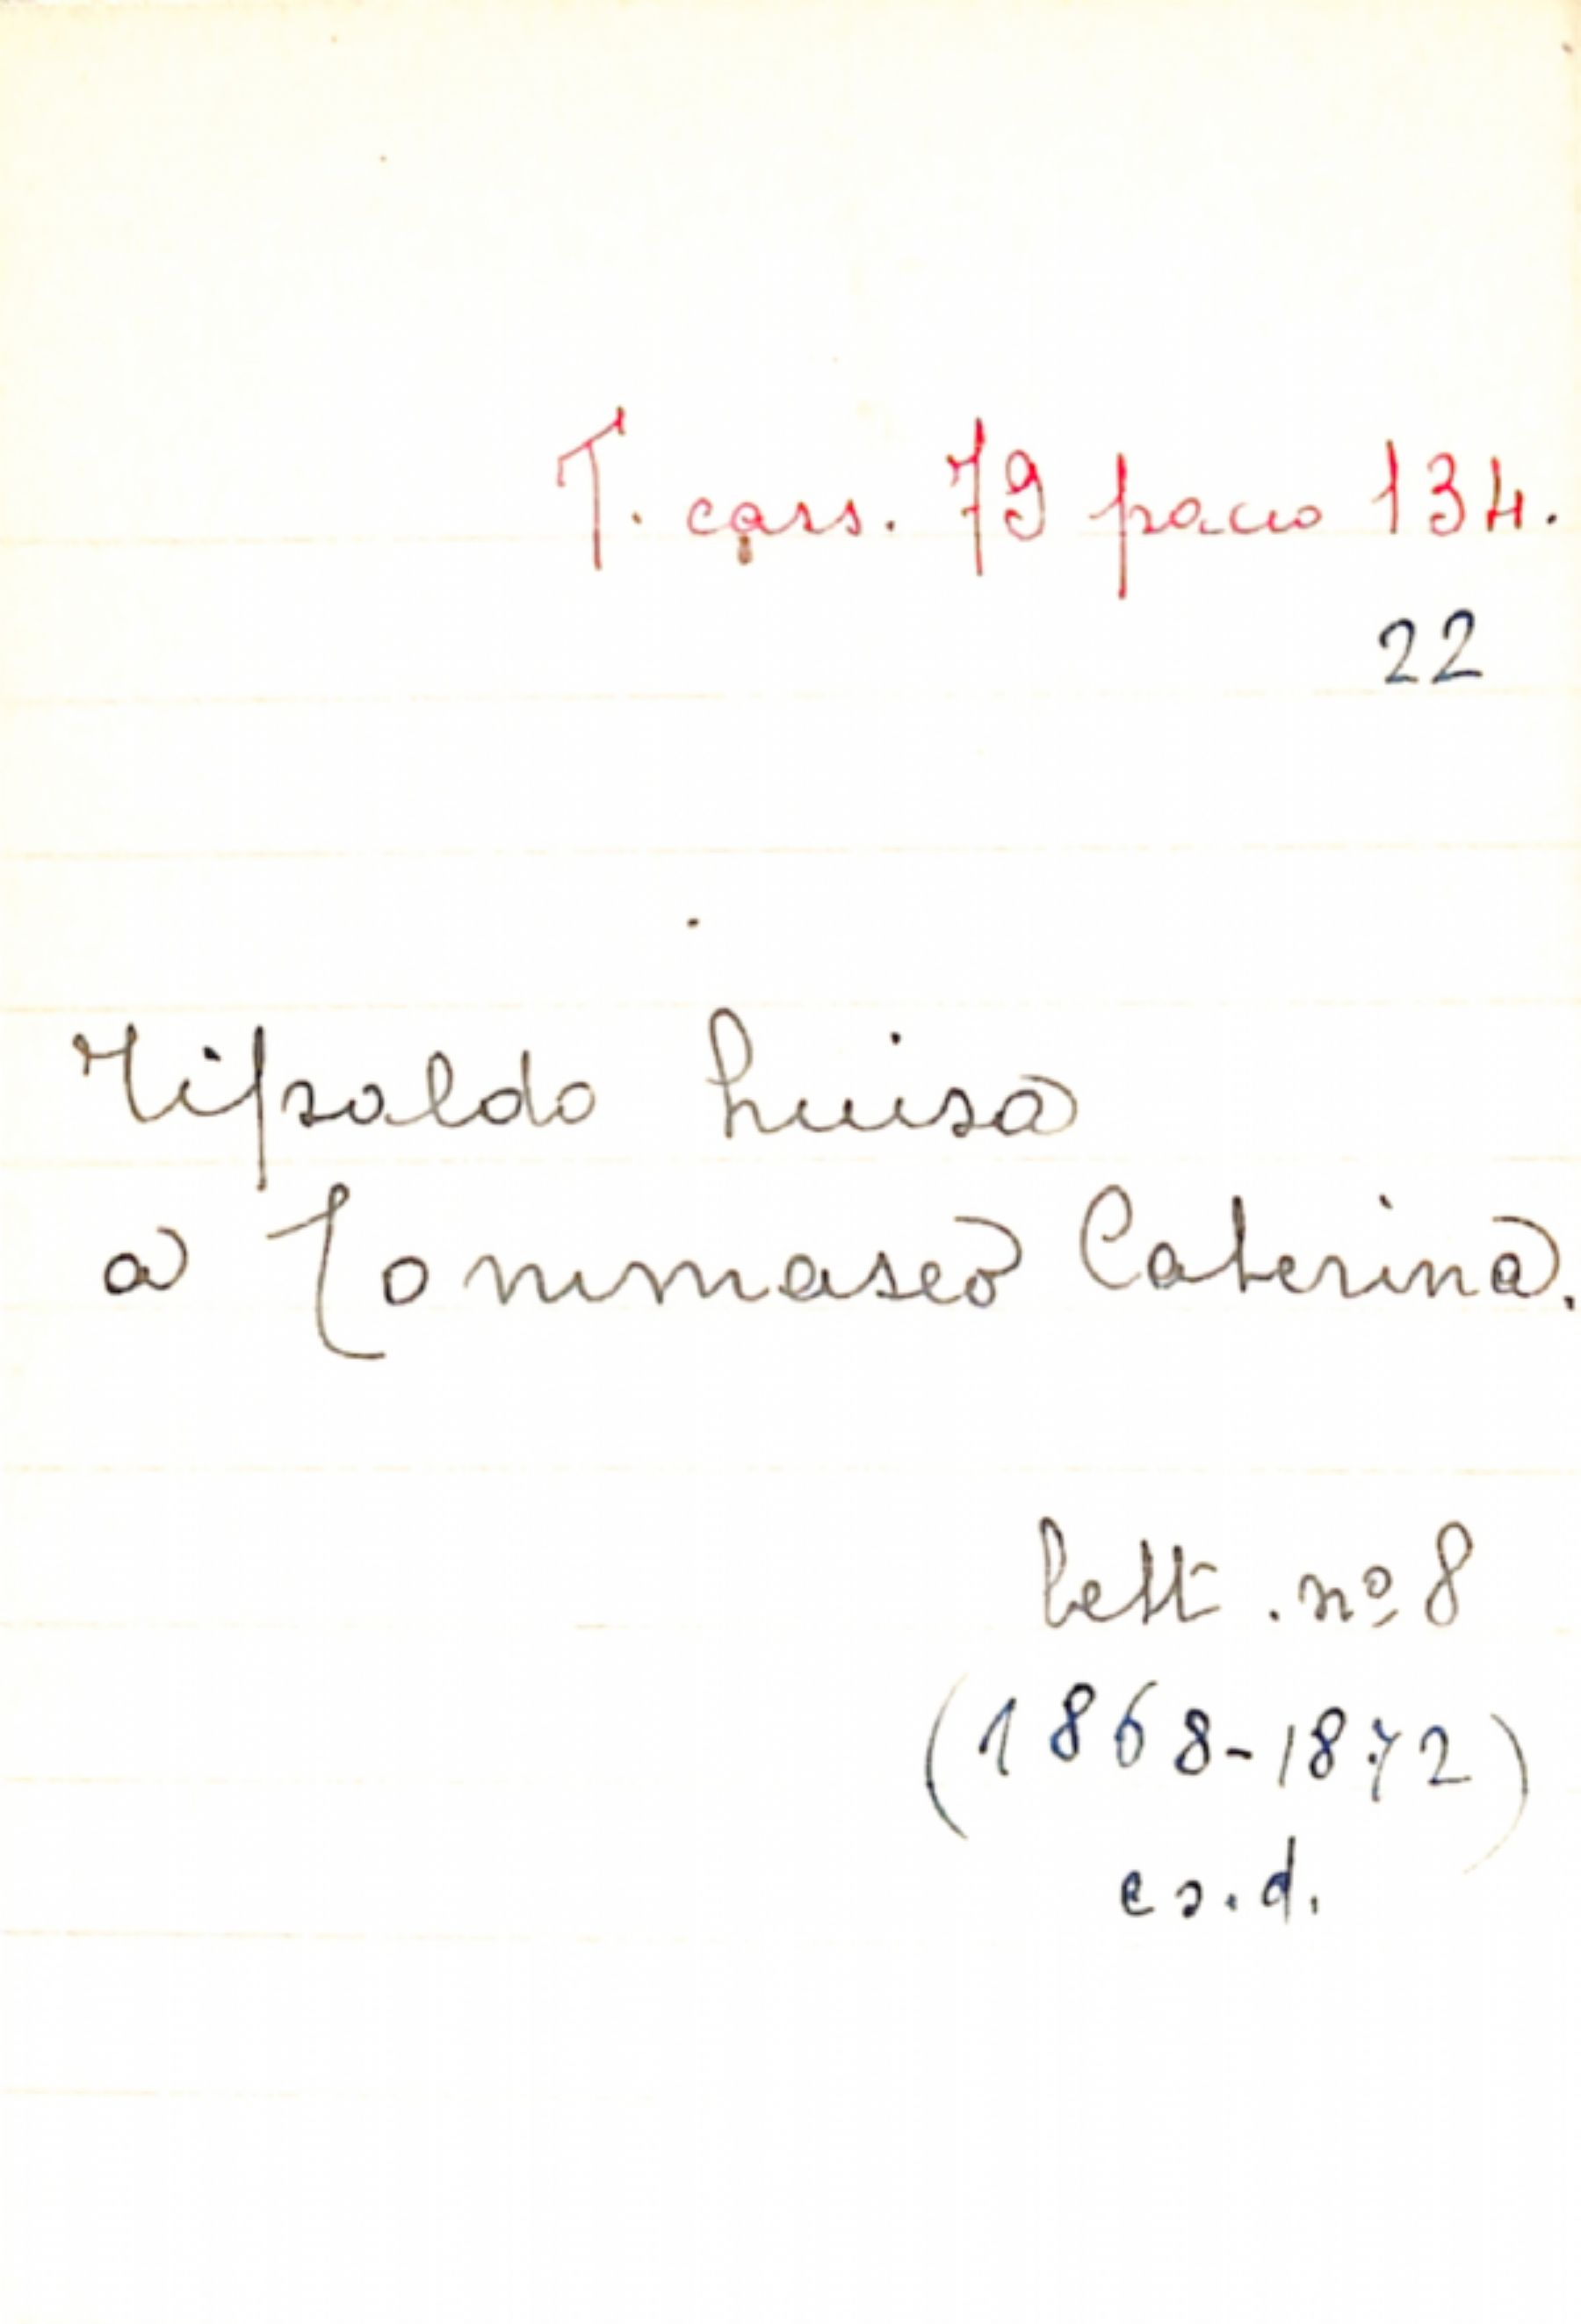 T. cass. 79 pacco 134.
22
Tipaldo Luisa
a Tommaseo Caterina.
lett. nº 8
(1868-1872)
e s.d.